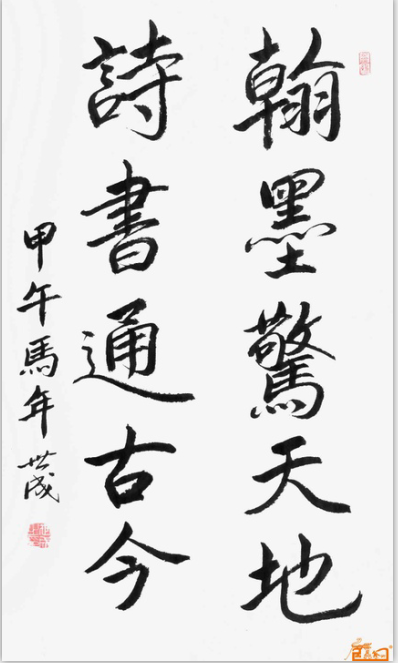 翰墨驚天地
詩書通古今
甲午馬年 世成